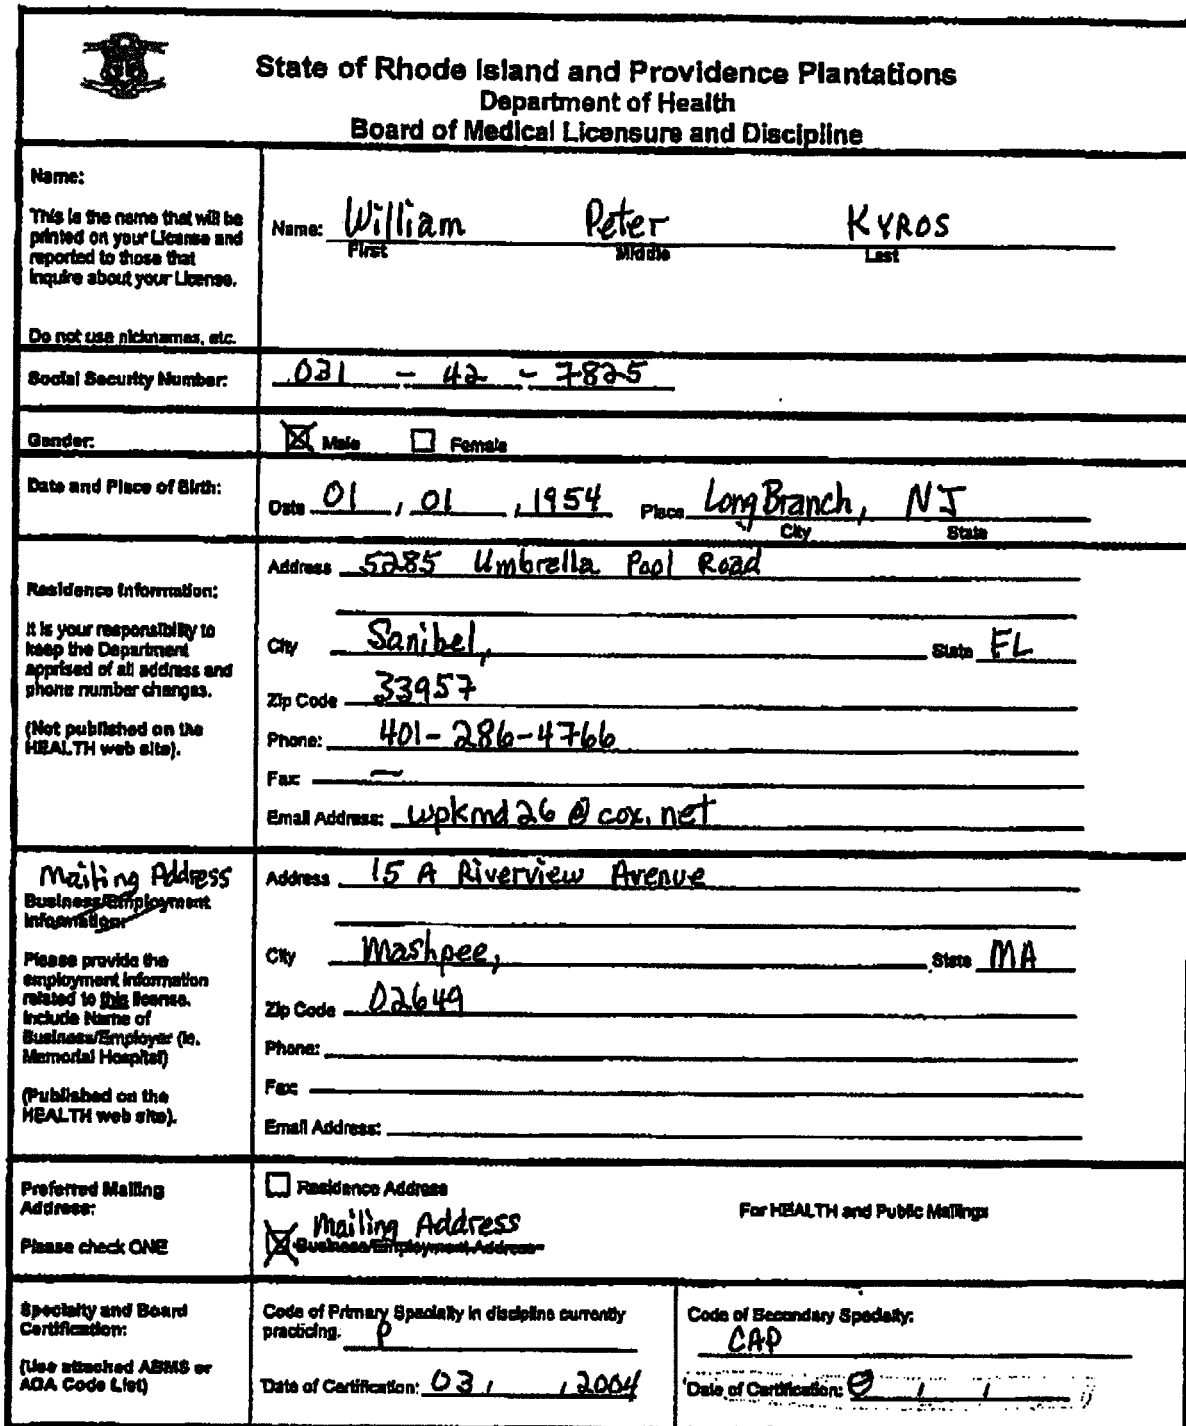 State of Rhode Island and Providence Plantations
Department of Health
Board of Medical Licensure and Discipline
Name:
This is the name that will be
printed on your License and
reported to those that
inquire about your License.
Do not use nicknames, etc.
Name: William Peter KYROS
First Middle Last
Social Security Number:
031 - 42 - 7825
Gender:
☒ Male ☐ Female
Date and Place of Birth:
Date 01 , 01 , 1954 Place Long Branch, NJ
City State
Residence Information:
It is your responsibility to
keep the Department
apprised of all address and
phone number changes.
(Not published on the
HEALTH web site).
Address 5285 Umbrella Pool Road
City Sanibel, State FL
Zip Code 33957
Phone: 401-286-4766
Fax: —
Email Address: wpkmd26@cox.net
Mailing Address
Business/Employment
Information:
Please provide the
employment information
related to this license.
Include Name of
Business/Employer (ie.
Memorial Hospital)
(Published on the
HEALTH web site).
Address 15 A Riverview Avenue
City Mashpee, State MA
Zip Code 02649
Phone:
Fax:
Email Address:
Preferred Mailing
Address:
Please check ONE
☐ Residence Address
Mailing Address
☒ Business/Employment Address
For HEALTH and Public Mailings
Specialty and Board
Certification:
(Use attached ABMS or
AOA Code List)
Code of Primary Specialty in discipline currently
practicing. P
Date of Certification: 03 , , 2004
Code of Secondary Specialty:
CAP
Date of Certification: / /